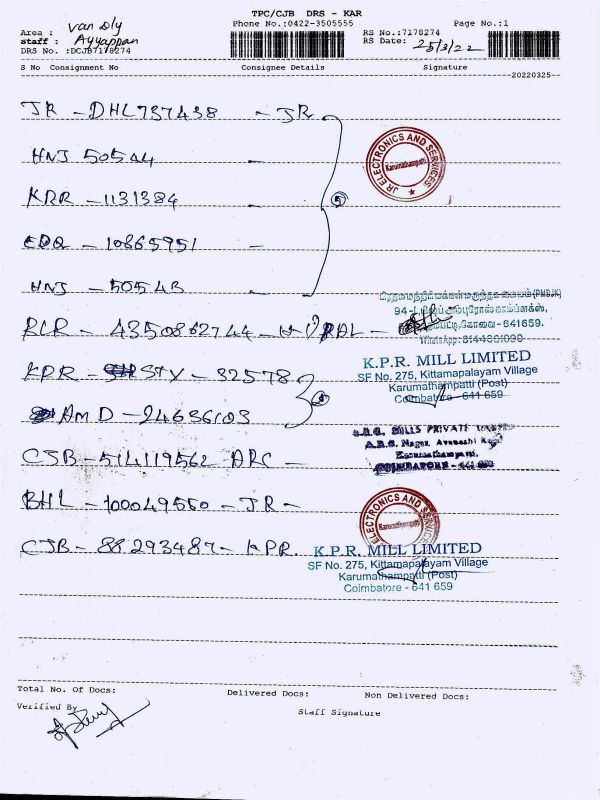 TPC/CJB DRS - KAR
Phone No.:0422-3505555 Page No.:1
Area : van Dly
Staff : Ayyappan
DRS No. :DCJB7178274
RS No.:7178274
RS Date: 25/3/22
S No Consignment No Consignee Details Signature
20220325
JR - DHL737438 - JR
HNJ 50544 -
KRR - 1131384 -
5
EDQ - 10865951 -
HNJ - 50543
JR ELECTRONICS AND SERVICES
Karumathampatti
RLR - 4350862744 -
94-
641659.
WhatsApp: 8144661090
KPR - STY - 32578
AMD - 24636103
K.P.R. MILL LIMITED
SF No. 275, Kittamapalayam Village
Karumathampatti (Post)
Coimbatore - 641 659
CJB - 514119562 ARC -
MILLS PRIVATE
Nagar, Avanashi Road
Karumathampatti,
COIMBATORE - 641
BHL - 100049550 - JR -
ELECTRONICS AND SERVICES
Karumathampatti
CJB - 88293487 - KPR.
K.P.R. MILL LIMITED
SF No. 275, Kittamapalayam Village
Karumathampatti (Post)
Coimbatore - 641 659
Total No. Of Docs: Delivered Docs: Non Delivered Docs:
Verified By Staff Signature